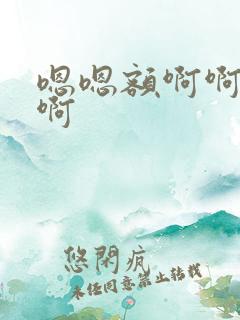 嗯嗯额啊啊
啊
悠閑疯
未经同意禁止转载